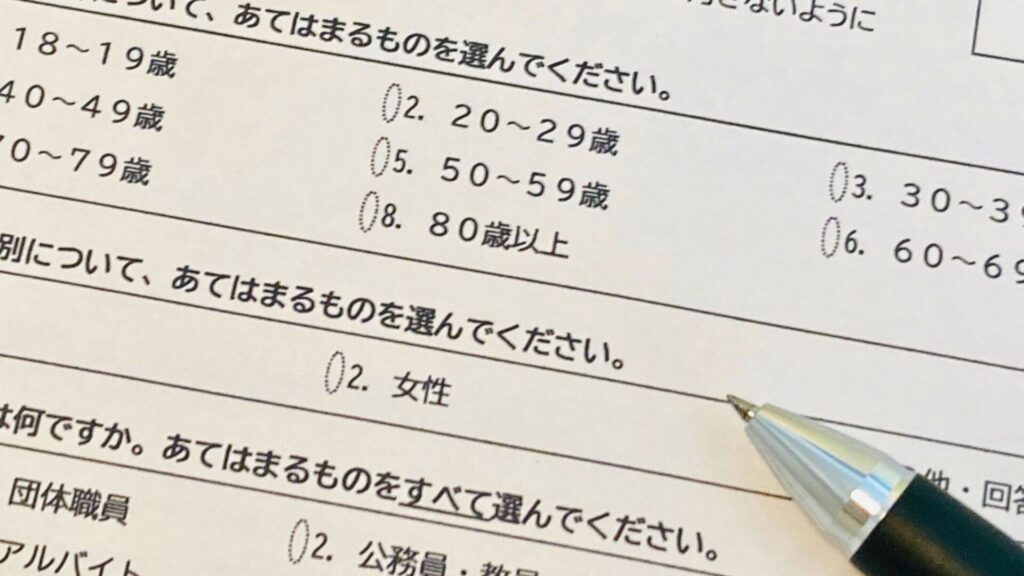 さないように
について、あてはまるものを選んでください。
18～19歳 2. 20～29歳 3. 30～39
40～49歳 5. 50～59歳 6. 60～69
70～79歳 8. 80歳以上
別について、あてはまるものを選んでください。
2. 女性 他・回答
は何ですか。あてはまるものをすべて選んでください。
団体職員 2. 公務員・教員
アルバイト